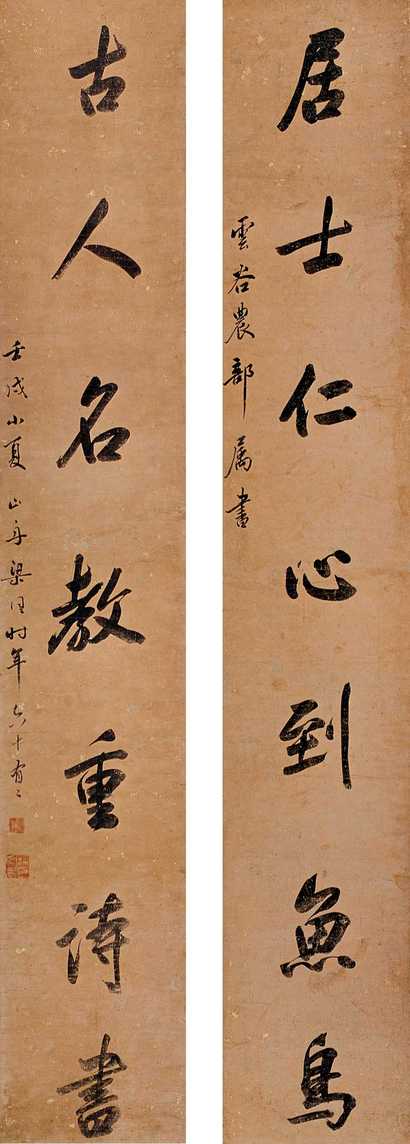 居士仁心到魚鳥
雲谷農部屬書
古人名教重詩書
壬戌小夏山舟梁同書時年六十有二